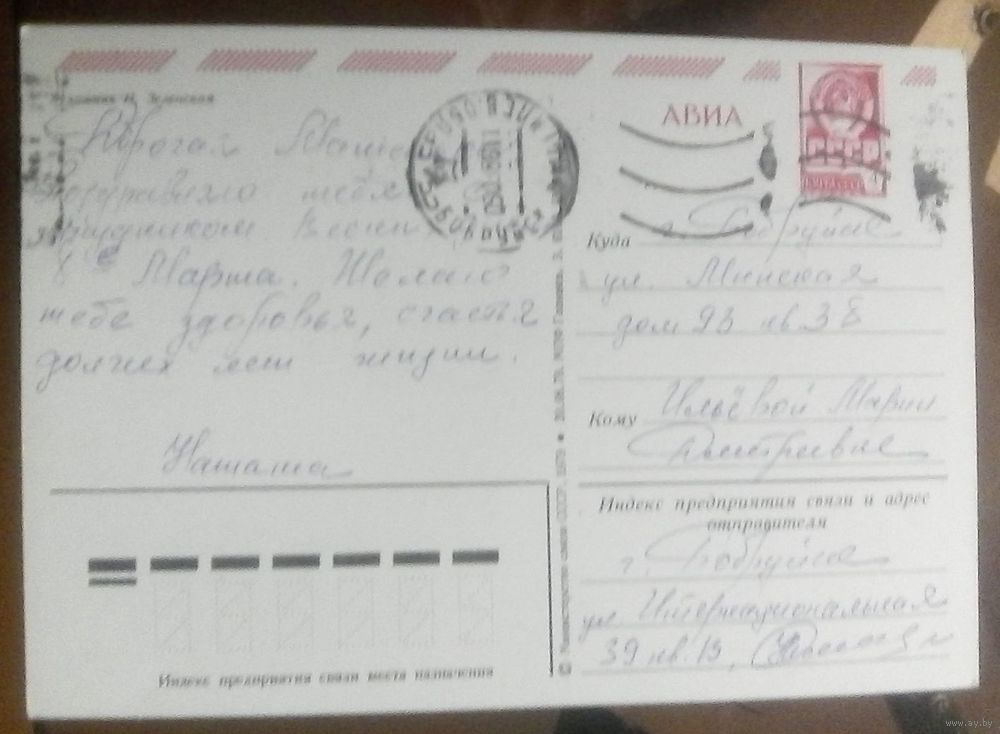 Зеленская
Дорогая Маша
Поздравляю тебя
праздником Весны
8е Марта. Желаю
тебе здоровья, счастья
долгих лет жизни.
Наташа
АВИА
СССР
Куда г. Бобруйск
ул. Минская
дом 93 кв. 38
Кому Ильёвой Марии
Дмитревне
Индекс предприятия связи и адрес
отправителя
г. Бобруйск
ул. Интернациональная
39 кв. 13,
Индекс предприятия связи места назначения
© Министерство связи СССР, 1979
www.ay.by